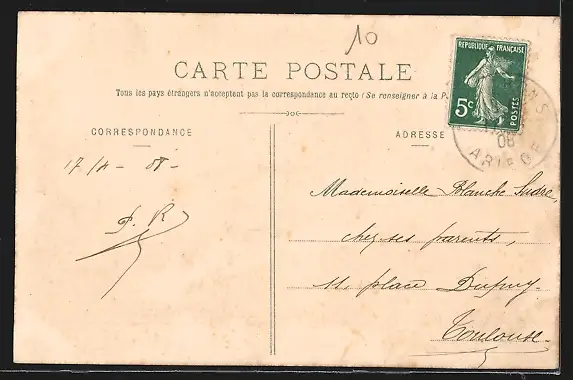 10
CARTE POSTALE
Tous les pays étrangers n'acceptent pas la correspondance au recto (Se renseigner à la P
REPUBLIQUE FRANÇAISE
5c
POSTES
NS
08
ARIEGE
CORRESPONDANCE
ADRESSE
17/4 - 08 -
P. R
Mademoiselle Blanche Sudre,
chez ses parents,
11, place Dupuy-
Toulouse-